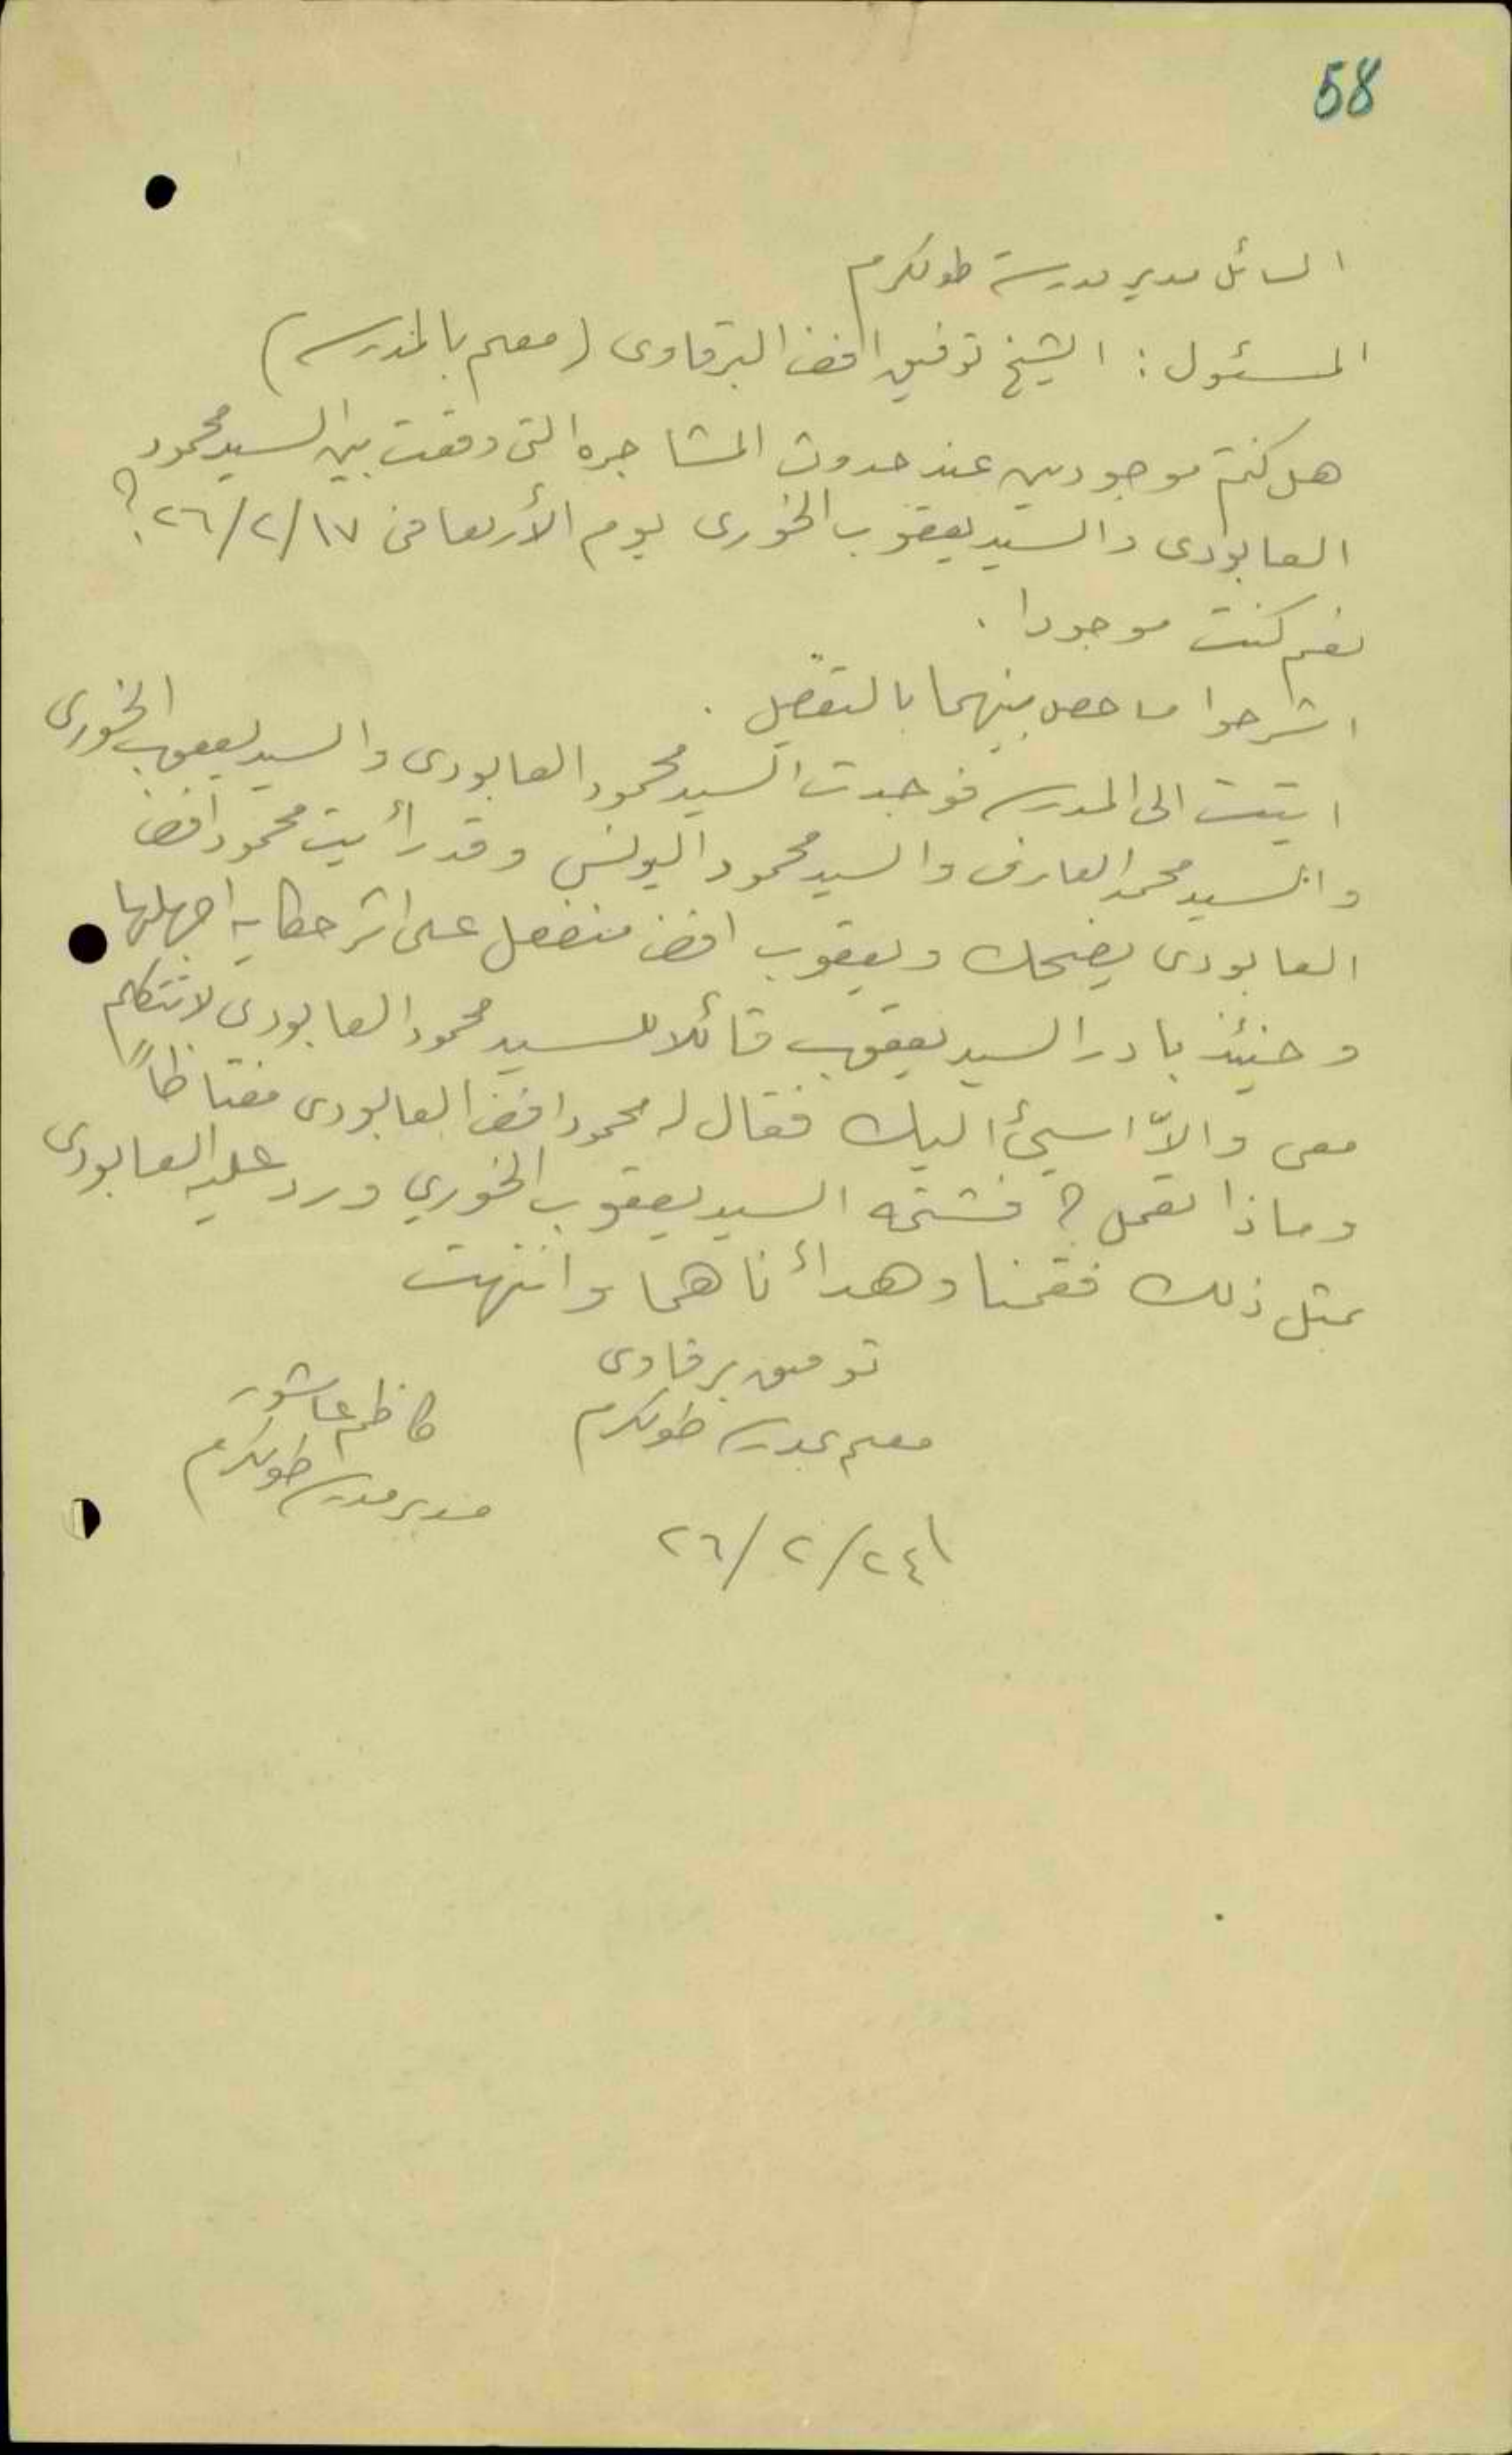 58
السائل مدير مدرسة طولكرم
المسئول : الشيخ توفيق افندي البرقاوى (معلم بالمدرسه)
هل كنتم موجودين عند حدوث المشاجره التى وقعت بين السيد محمود
العابودى والسيد يعقوب الخورى يوم الأربعا فى ١٧/٢/٢٦ ؟
نعم كنت موجودا .
اشرحوا ما حصل بينهما بالتفصيل .
اتيت الى المدرسه فوجدت السيد محمود العابودى والسيد يعقوب الخورى
والسيد محمد العارف والسيد محمود اليونس وقد رأيت محمود افندي
العابودى يضحك ويعقوب افندي منفعل على اثر حكاية اجهلها
وحنيئذ بادر السيد يعقوب قائلا للسيد محمود العابودى لا تتكلم
معى والاّ اسيئ اليك فقال له محمود افندي العابودى مغتاظاً
وماذا تعمل ؟ فشتمه السيد يعقوب الخوري ورد عليه العابودى
بمثل ذلك فقمنا وهدأناهما وانتهت
توفيق برقاوى
معلم بمدرسة طولكرم
كاظم عاشور
مدير مدرسة طولكرم
٢٤/٢/٢٦